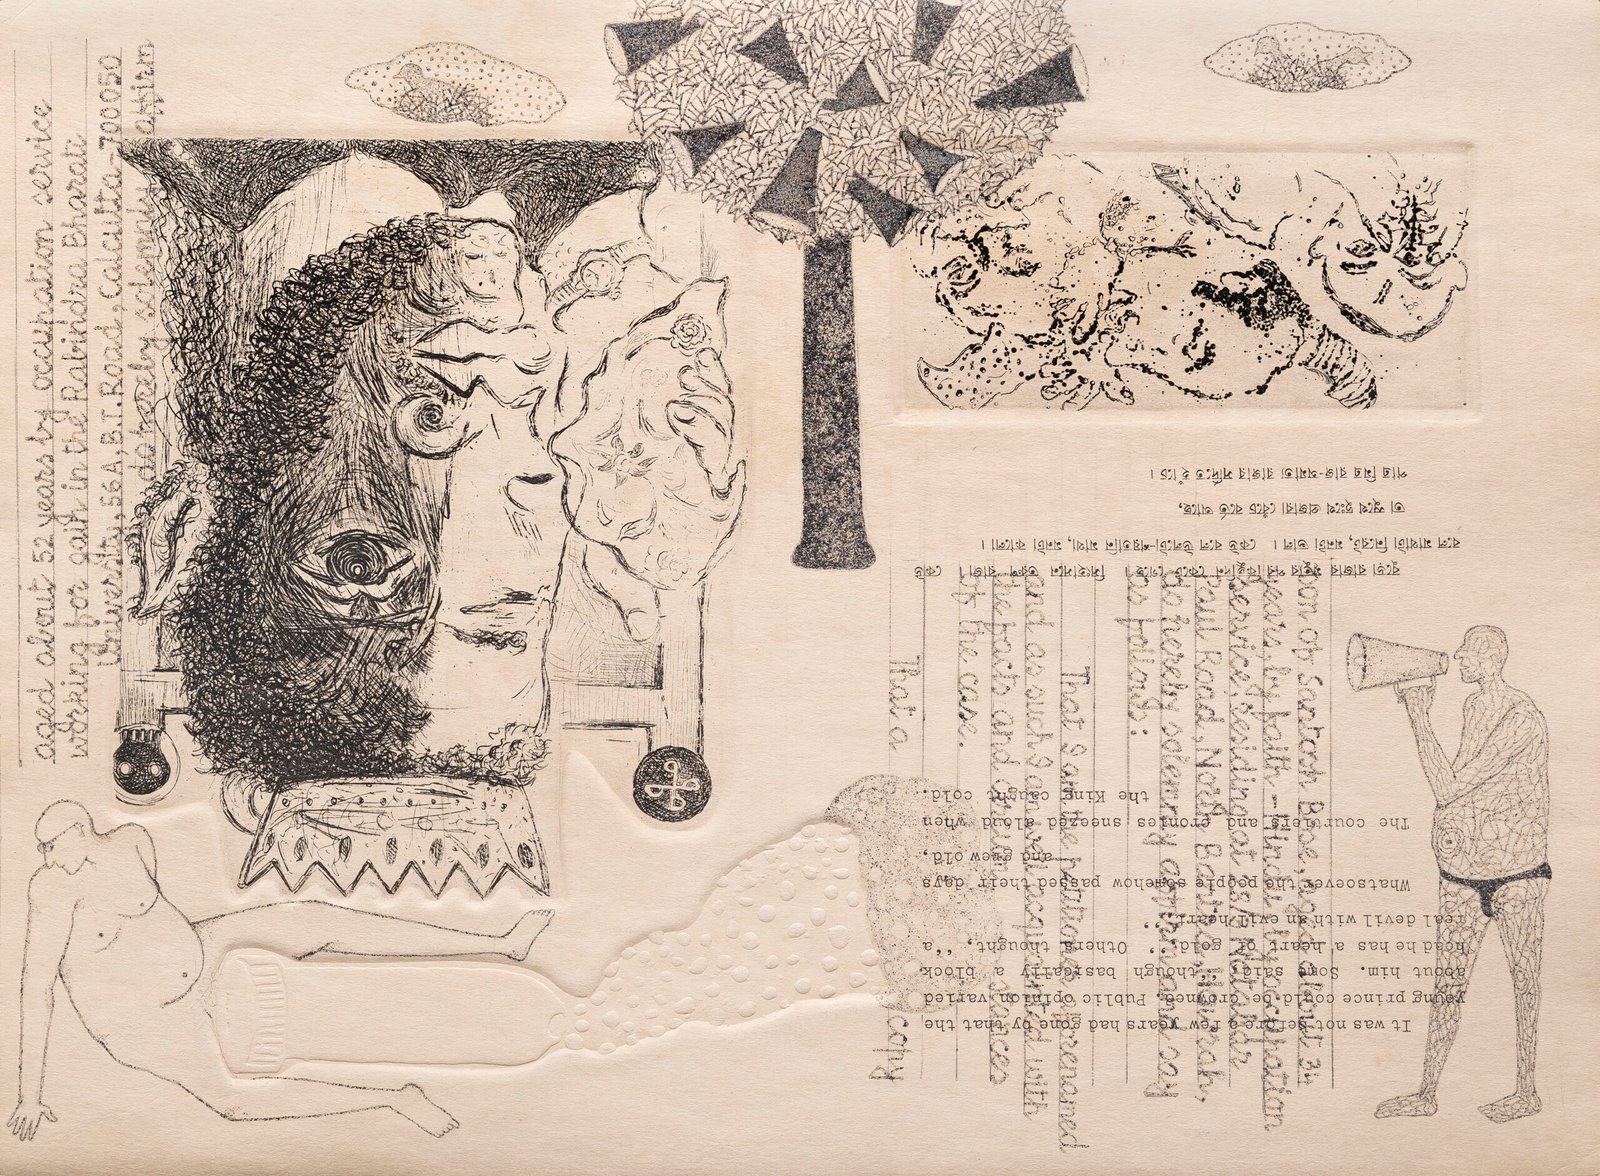 aged about 52 years by occupation service
working for gain in the Rabindra Bharati
University, 56A, B.T. Road, Calcutta-700050
do hereby solemnly affirm
বুড়ো রাজার মৃত্যুর পর কিছুদিন কেটে গেলে। সিংহাসনে তরুণ রাজা। কেউ
বলে মাথাটি নিরেট, মনটা ভাল। কেউ বলে উলটো-শয়তানি মাথা, মনটা কালো।
তা সুখে দুঃখে প্রজারা বেঁচে বর্তে আছে,
পাত্র মিত্র রাজ-অমাত্য রাজার সর্দিতে হাঁচে।
Son of Santosh Bose, aged about 34
years, by faith - Hindu by occupation
service, residing at
Paul Road, North Bantra, Howrah,
do hereby solemnly affirm and say
as follows:
That I am the petitioner abovenamed
and as such I am well acquainted with
the facts and circumstances
of the case.
That a copy
It was not before a few years had gone by that the
young prince could be crowned. Public opinion varied
about him. Some said, ''though basically a block
head he has a heart of gold''. Others thought, ''a
real devil with an evil heart''.
Whatsoever the people somehow passed their days
and grew old.
The courtiers and cronies sneezed aloud when
the King caught cold.